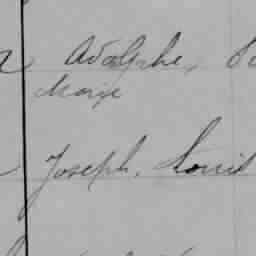 Adolphe,
Marie
Joseph, Louis